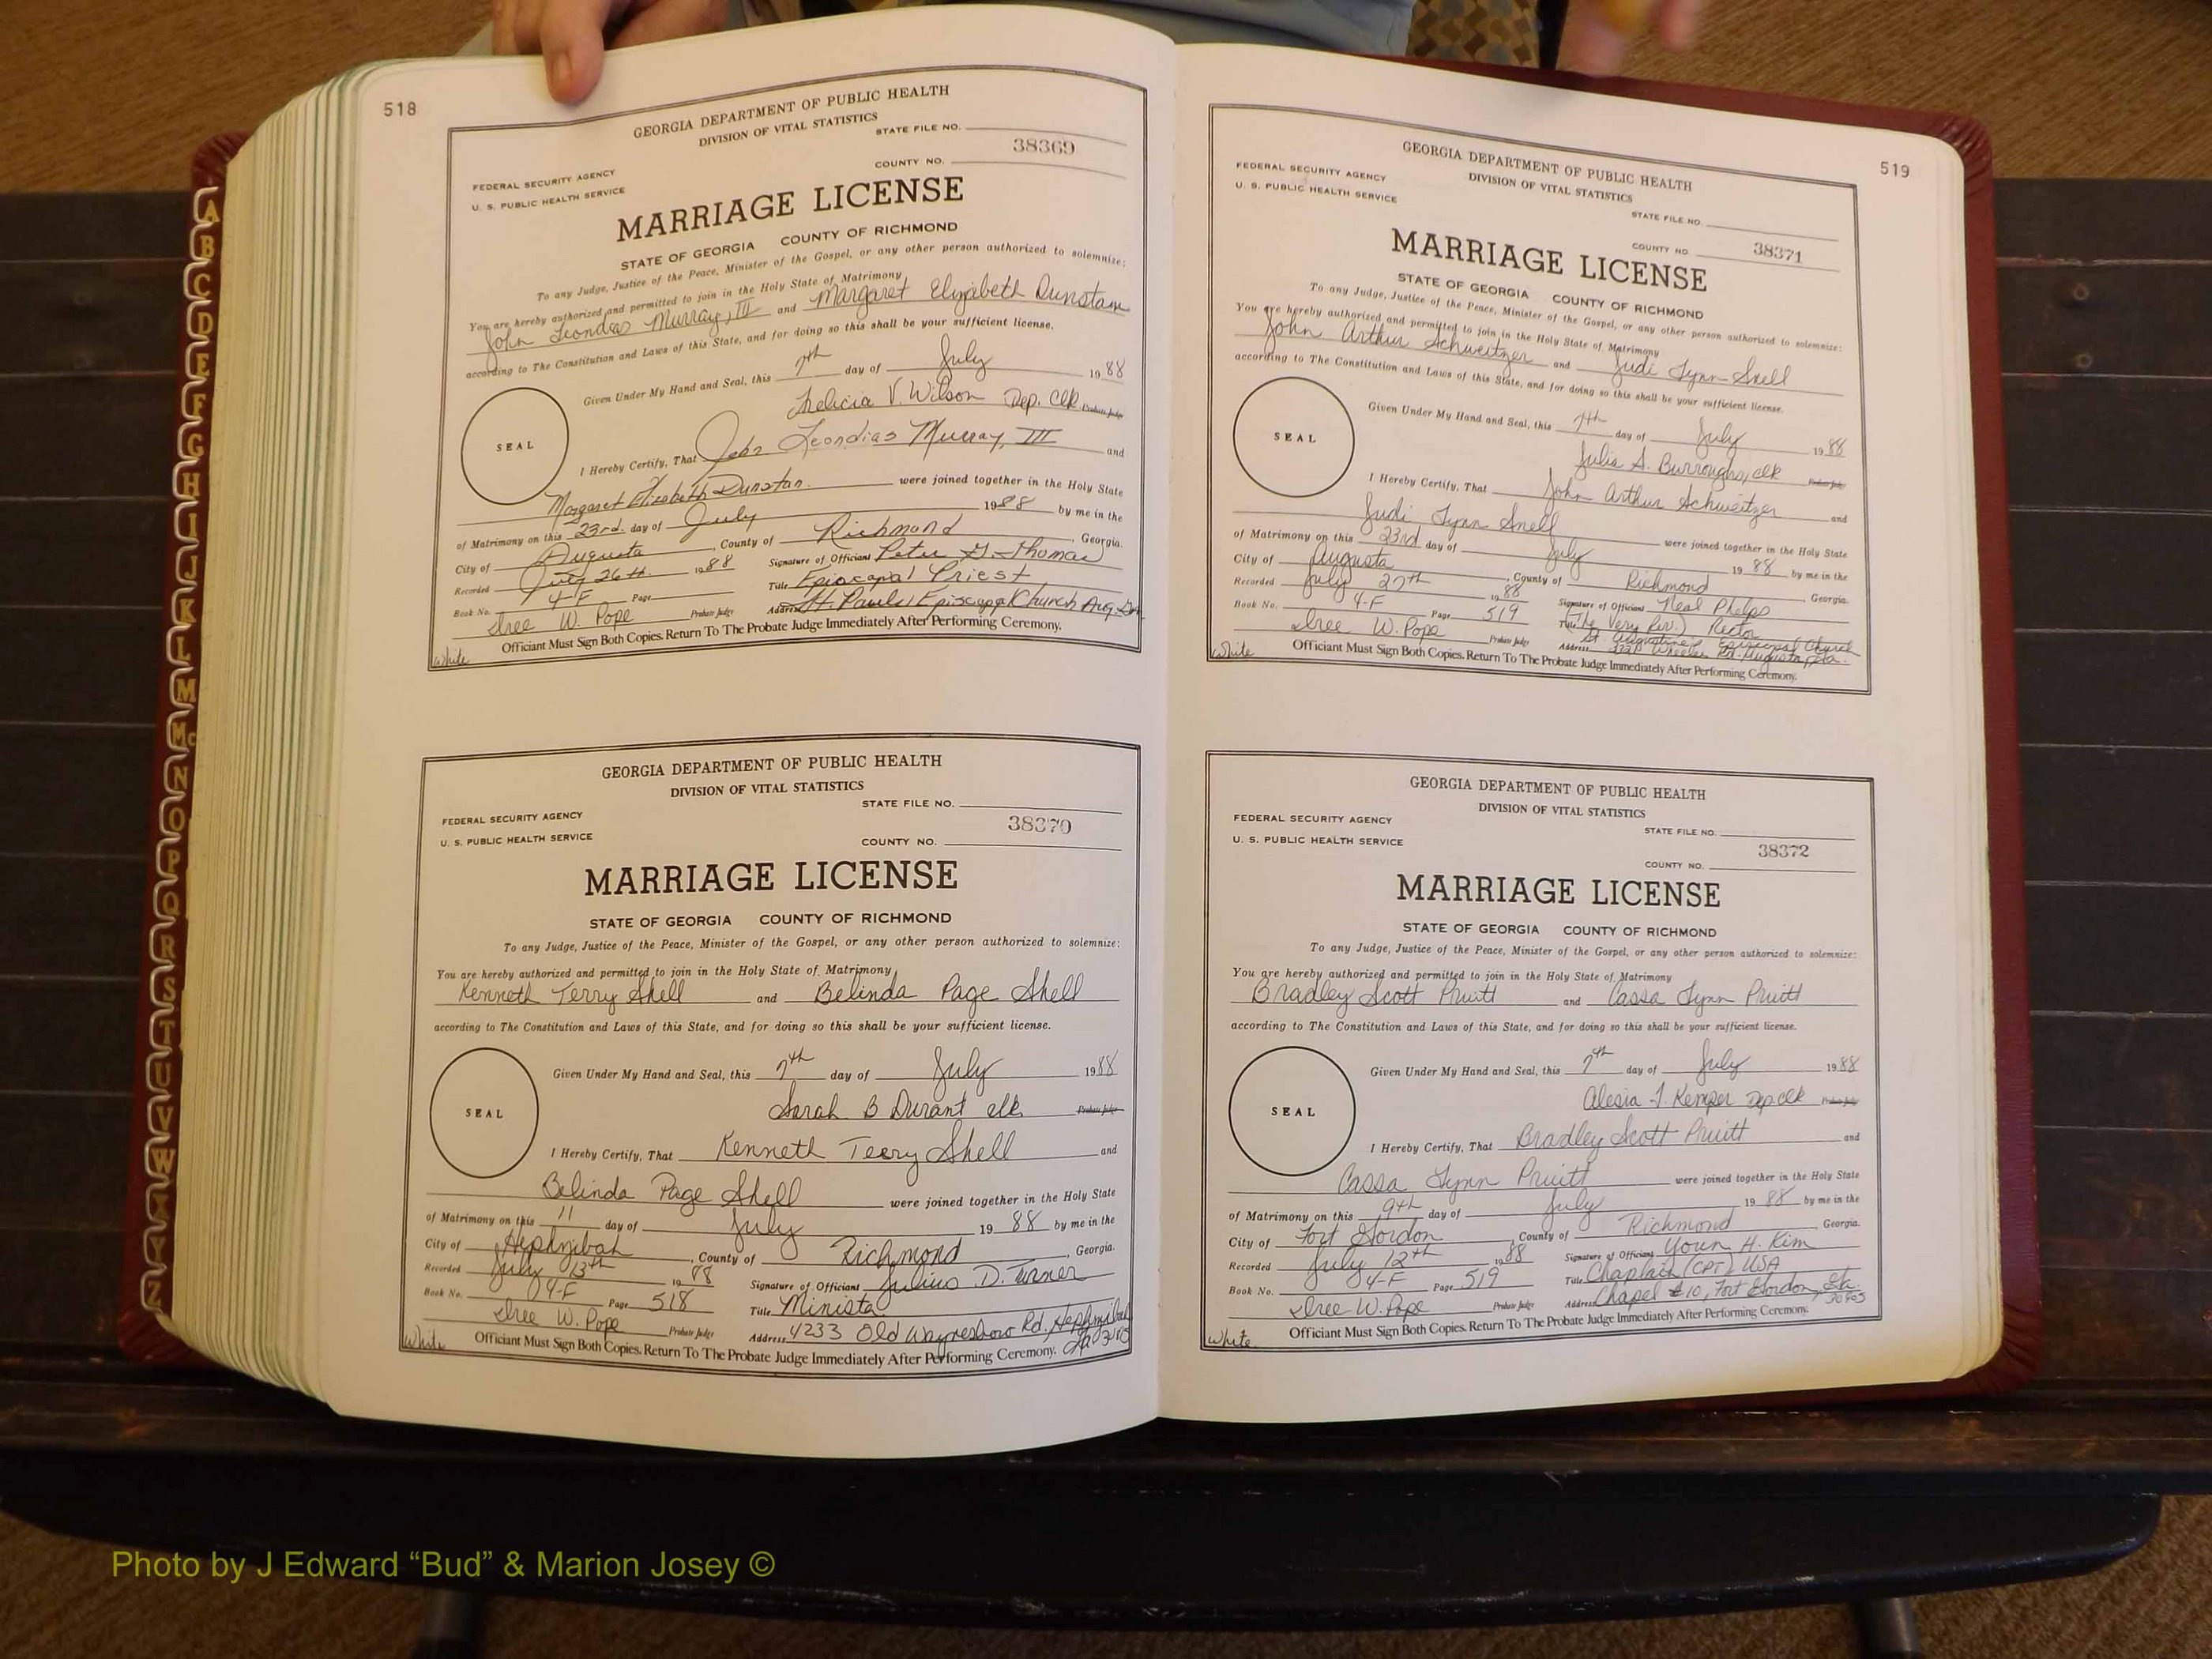 518
GEORGIA DEPARTMENT OF PUBLIC HEALTH
DIVISION OF VITAL STATISTICS
STATE FILE NO.
38369
COUNTY NO.
FEDERAL SECURITY AGENCY
U. S. PUBLIC HEALTH SERVICE
MARRIAGE LICENSE
STATE OF GEORGIA COUNTY OF RICHMOND
To any Judge, Justice of the Peace, Minister of the Gospel, or any other person authorized to solemnize:
You are hereby authorized and permitted to join in the Holy State of Matrimony
John Leondias Murray, III and Margaret Elizabeth Dunstan
according to The Constitution and Laws of this State, and for doing so this shall be your sufficient license.
Given Under My Hand and Seal, this 7th day of July 1988
SEAL
Felicia V. Wilson Dep. Clk Probate Judge
I Hereby Certify, That John Leondias Murray, III and
Margaret Elizabeth Dunstan were joined together in the Holy State
of Matrimony on this 23rd. day of July 1988 by me in the
City of Augusta, County of Richmond, Georgia.
Recorded July 26th 1988 Signature of Officiant Peter G. Thomas
Book No. 4-F Page Title Episcopal Priest
Dree W. Pope Probate Judge Address St. Paul's Episcopal Church Aug. Ga
Officiant Must Sign Both Copies. Return To The Probate Judge Immediately After Performing Ceremony.
White
GEORGIA DEPARTMENT OF PUBLIC HEALTH
DIVISION OF VITAL STATISTICS
STATE FILE NO.
FEDERAL SECURITY AGENCY
38370
U. S. PUBLIC HEALTH SERVICE
COUNTY NO.
MARRIAGE LICENSE
STATE OF GEORGIA COUNTY OF RICHMOND
To any Judge, Justice of the Peace, Minister of the Gospel, or any other person authorized to solemnize:
You are hereby authorized and permitted to join in the Holy State of Matrimony
Kenneth Terry Shell and Belinda Page Shell
according to The Constitution and Laws of this State, and for doing so this shall be your sufficient license.
Given Under My Hand and Seal, this 7th day of July 1988
SEAL
Sarah B Durant clk Probate Judge
I Hereby Certify, That Kenneth Terry Shell and
Belinda Page Shell were joined together in the Holy State
of Matrimony on this 11 day of July 1988 by me in the
City of Hephzibah, County of Richmond, Georgia.
Recorded July 13th 1988 Signature of Officiant Julius D. Turner
Book No. 4-F Page 518 Title Minister
Dree W. Pope Probate Judge Address 4233 Old Waynesboro Rd, Hephzibah
Officiant Must Sign Both Copies. Return To The Probate Judge Immediately After Performing Ceremony.
White
519
GEORGIA DEPARTMENT OF PUBLIC HEALTH
DIVISION OF VITAL STATISTICS
FEDERAL SECURITY AGENCY
U. S. PUBLIC HEALTH SERVICE
STATE FILE NO.
COUNTY NO. 38371
MARRIAGE LICENSE
STATE OF GEORGIA COUNTY OF RICHMOND
To any Judge, Justice of the Peace, Minister of the Gospel, or any other person authorized to solemnize:
You are hereby authorized and permitted to join in the Holy State of Matrimony
John Arthur Schweitzer and Judi Lynn Snell
according to The Constitution and Laws of this State, and for doing so this shall be your sufficient license.
Given Under My Hand and Seal, this 7th day of July 1988
SEAL
Julia A. Burroughs, clk Probate Judge
I Hereby Certify, That John Arthur Schweitzer and
Judi Lynn Snell were joined together in the Holy State
of Matrimony on this 23rd day of July 1988 by me in the
City of Augusta, County of Richmond, Georgia.
Recorded July 27th 1988 Signature of Officiant Neal Phelps
Book No. 4-F Page 519 Title (The Very Rev.) Rector
St. Augustine's Episcopal Church
Dree W. Pope Probate Judge Address Wheeler Rd. Augusta, Ga.
Officiant Must Sign Both Copies. Return To The Probate Judge Immediately After Performing Ceremony.
White
GEORGIA DEPARTMENT OF PUBLIC HEALTH
DIVISION OF VITAL STATISTICS
FEDERAL SECURITY AGENCY
STATE FILE NO.
U. S. PUBLIC HEALTH SERVICE
38372
COUNTY NO.
MARRIAGE LICENSE
STATE OF GEORGIA COUNTY OF RICHMOND
To any Judge, Justice of the Peace, Minister of the Gospel, or any other person authorized to solemnize:
You are hereby authorized and permitted to join in the Holy State of Matrimony
Bradley Scott Pruitt and Cassa Lynn Pruitt
according to The Constitution and Laws of this State, and for doing so this shall be your sufficient license.
Given Under My Hand and Seal, this 7th day of July 1988
SEAL
Alesia J. Kemper Dep clk Probate Judge
I Hereby Certify, That Bradley Scott Pruitt and
Cassa Lynn Pruitt were joined together in the Holy State
of Matrimony on this 9th day of July 1988 by me in the
City of Fort Gordon, County of Richmond, Georgia.
Recorded July 12th 1988 Signature of Officiant Youn H. Kim
Book No. 4-F Page 519 Title Chaplain (CPT) USA
Dree W. Pope Probate Judge Address Chapel #10, Fort Gordon, Ga. 30905
Officiant Must Sign Both Copies. Return To The Probate Judge Immediately After Performing Ceremony.
White
A
B
C
D
E
F
G
H
I
J
K
L
M
Mc
N
O
P
Q
R
S
T
U
V
W
X
Y
Z
Photo by J Edward “Bud” & Marion Josey ©